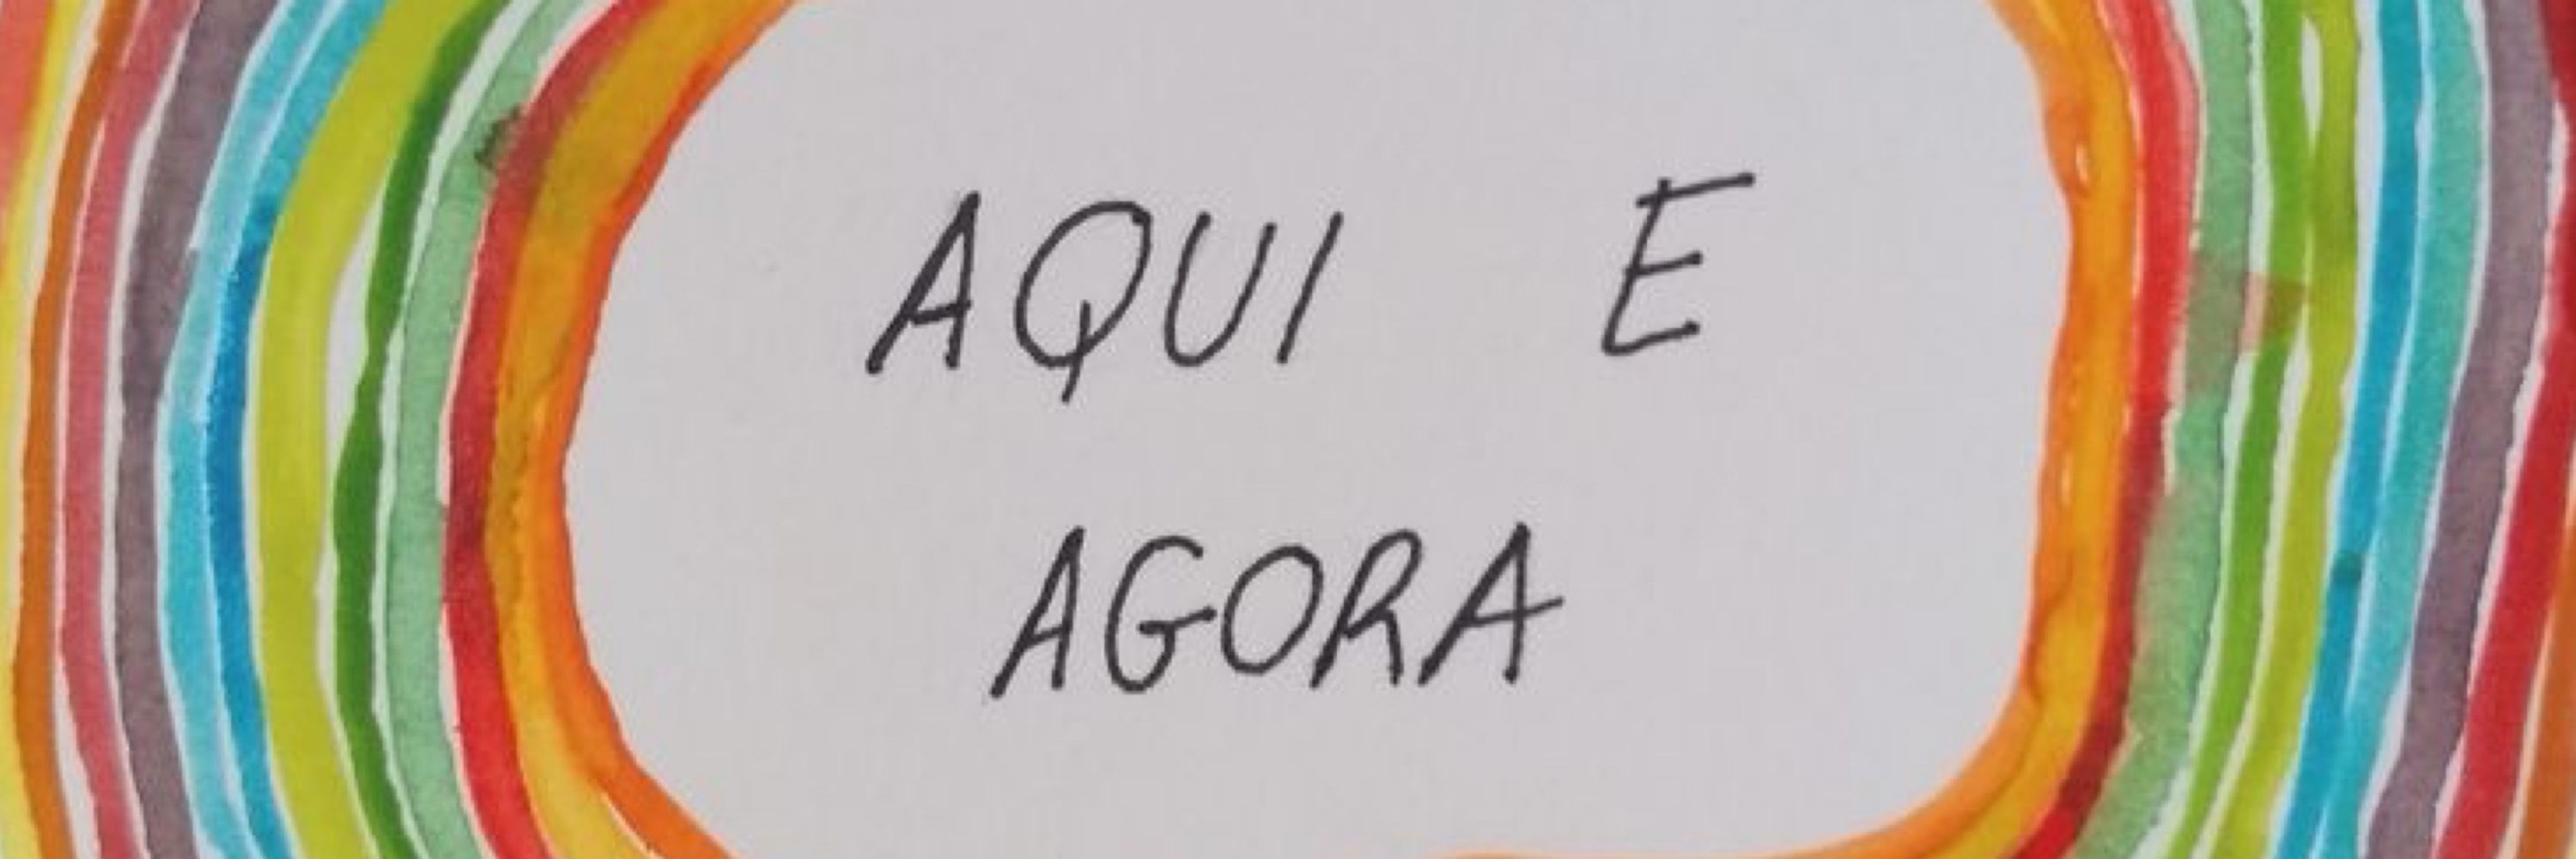 AQUI E
AGORA